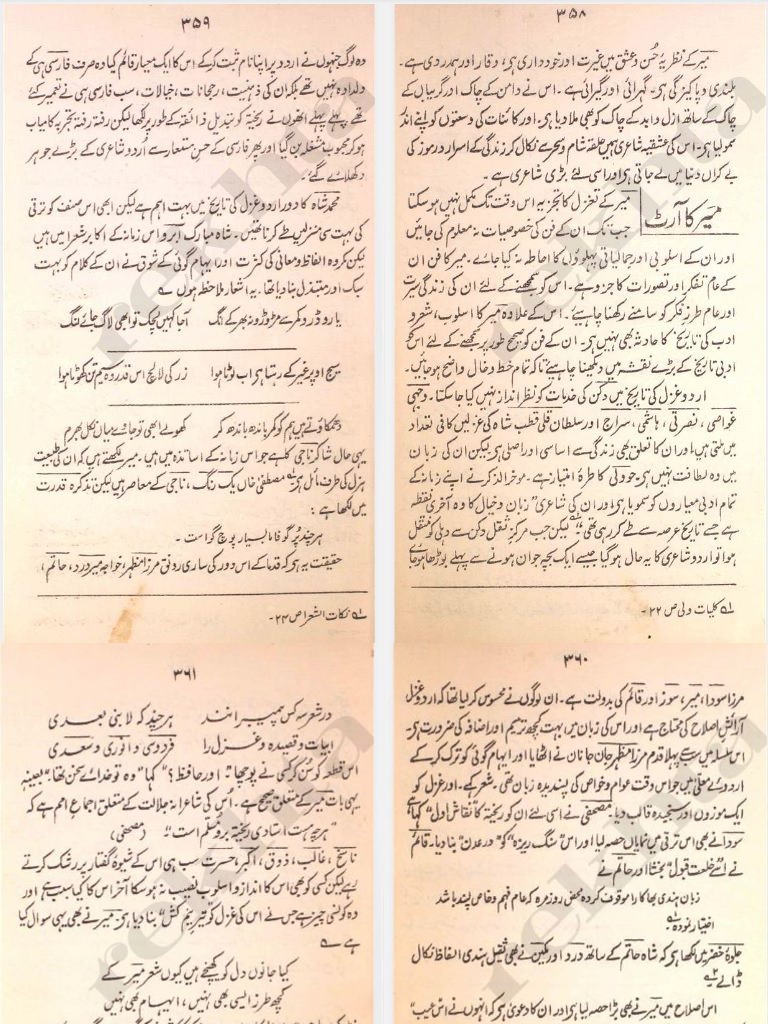 ۳۵۸
میر کے نظریۂ حُسن و عشق میں غیرت اور خودداری ہے، وقار اور ہمدردی ہے۔
بلندی و پاکیزگی ہے۔ گہرائی اور گیرائی ہے۔ اس نے دامن کے چاک اور گریباں کے
چاک کے ساتھ ازل و ابد کے چاک کو بھی ملا دیا ہے۔ اور کائنات کی وسعتوں کو اپنے اندر
سمو لیا ہے۔ اس کی عشقیہ شاعری ہمیں حلقہ شام و سحر سے نکال کر زندگی کے اسرار و رموز کی
بے کراں دنیا میں لے جاتی ہے اور اسی لئے بڑی شاعری ہے۔
میر کا آرٹ
میر کے تغزل کا تجزیہ اس وقت تک مکمل نہیں ہو سکتا
جب تک ان کے فن کی خصوصیات نہ معلوم کی جائیں
اور ان کے اسلوبی اور جمالیاتی پہلوؤں کا احاطہ نہ کیا جائے۔ میر کا فن ان
کے عام تفکر اور تصورات کا جزو ہے۔ اس کو سمجھنے کے لئے ان کی زندگی سیرت
اور عام طرزِ فکر کو سامنے رکھنا چاہیے۔ اس کے علاوہ میر کا اسلوب، شعر و
ادب کی تاریخ کا حادثہ بھی نہیں ہے۔ ان کے فن کو صحیح طور پر سمجھنے کے لئے اس کو
ادبی تاریخ کے بڑے نقشہ میں دیکھنا چاہیے تاکہ تمام خط و خال واضح ہو جائیں۔
اردو غزل کی تاریخ میں دکن کی خدمات کو نظر انداز نہیں کیا جا سکتا۔ وجہی
غواصی، نصرتی، ہاشمی، سراج اور سلطان قلی قطب شاہ کی غزلیں کافی تعداد
میں ملتی ہیں اور ان کا تعلق بھی زندگی سے اساسی اور اصلی ہے لیکن ان کی زبان
میں وہ لطافت نہیں ہے جو ولی کا طرۂ امتیاز ہے۔ موخرالذکر نے اپنے زمانہ کے
تمام ادبی معیاروں کو سمو یا ہے اور ان کی شاعری "زبان و خیال کا وہ آخری نقطہ
ہے جسے تاریخ عرصہ سے طے کر رہی تھی"۔ لیکن جب مرکزِ ثقل دکن سے دہلی کو منتقل
ہوا تو اردو شاعری کا یہ حال ہو گیا جیسے ایک بچہ جوان ہونے سے پہلے بوڑھا ہو جائے
۱؎ کلیات ولی ص ۲۲۔
۳۵۹
وہ لوگ جنہوں نے اردو پر اپنا نام ثبت کر کے اس کا ایک معیار قائم کیا وہ صرف فارسی ہی کے
دلدادہ نہیں تھے بلکہ ان کی ذہنیت، رجحانات، خیالات، سب فارسی ہی نے تعمیر کئے
تھے پہلے پہلے انھوں نے ریختہ کو تبدیل ذائقہ کے طور پر لکھا لیکن رفتہ رفتہ یہ تجربہ کامیاب
ہو کر محبوب مشغلہ بن گیا اور پھر فارسی کے حسنِ مستعار سے اُردو شاعری کے بڑے جوہر
دکھلائے گئے۔
محمد شاہ کا دور اردو غزل کی تاریخ میں بہت اہم ہے لیکن ابھی اس صنف کو ترقی
کی بہت سی منزلیں طے کرنا تھیں۔ شاہ مبارک آبرو اس زمانہ کے اکابر شعرا میں ہیں
لیکن مکروہ الفاظ و معانی کی کثرت اور ایہام گوئی کے شوق نے ان کے کلام کو بہت
سبک اور مبتذل بنا دیا تھا۔ یہ اشعار ملاحظہ ہوں ؎
یارو ڈرو کمرے مڑوڑو نہ بھر کے انگ
آجا کہیں لچک تو ابھی لاگ جائے لنگ
سیج اوپر غیر کے رہتا ہے اب لوٹا ہوا
زر کی لالچ اس قدر وہ سیم تن کھوٹا ہوا
دھمکاوتے ہیں ہم کو کمر باندھ باندھ کر
کھولے ابھی تو جائے میاں نکل بھرم
یہی حال شاکر ناجی کا ہے جو اس زمانہ کے اساتذہ میں ہیں۔ میر لکھتے ہیں کہ ان کی طبیعت
ہزل کی طرف مائل ہے۔ مصطفیٰ خاں یک رنگ، ناجی کے معاصر ہیں لیکن تذکرہ قدرت
میں لکھا ہے:
ہر چند پُر گو فاما بسیار پوچ گو است۔
حقیقت یہ ہے کہ قدما کے اس دور کی ساری رونق مرزا مظہر، خواجہ میر درد، حاتم،
۱؎ نکات الشعرا ص ۲۴۔
۳۶۰
مرزا سودا، میر، سوز اور قائم کی بدولت ہے۔ ان لوگوں نے محسوس کر لیا تھا کہ اردو غزل
آرائش اصلاح کی محتاج ہے اور اس کی زبان میں بہت کچھ ترمیم اور اضافہ کی ضرورت ہے۔
اس سلسلہ میں سب سے پہلا قدم مرزا مظہر جانِ جاناں نے اٹھایا اور ایہام گوئی کو ترک کر کے
اردوئے معلیٰ میں جو اس وقت عوام و خواص کی پسندیدہ زبان تھی۔ شعر کہے۔ اور غزل کو
ایک موزوں اور سنجیدہ قالب دیا۔ مصحفی نے اسی لئے ان کو ریختہ کا "نقاش اول" کہا ہے
سودا نے بھی اس ترقی میں نمایاں حصہ لیا اور اس "سنگ ریزہ" کو "در عدن" بنا دیا۔ قائم
نے اسے "خلعت قبول" بخشا اور حاتم نے
زبان ہندی بھاکا را موقوف کردہ محض روزمرہ کہ عام فہم و خاص پسند باشد
اختیار نمودہ ۱؎
جلوۂ خضر میں لکھا ہے کہ شاہ حاتم کے ساتھ درد اور یقین نے بھی ثقیل ہندی الفاظ نکال
ڈالے ۲؎
اس اصلاح میں میر نے بھی بڑا حصہ لیا ہے اور ان کا دعویٰ ہے کہ انہوں نے اس عیب"
۳۶۱
در شعر سہ کس پیمبر انند
ہر چند کہ لا نبی بعدی
ابیات و قصیدہ و غزل را
فردوسی و انوری و سعدی
اس قطعہ کو سُن کر کسی نے پوچھا "اور حافظ؟" کہا "وہ تو خدائے سخن تھا"۔ بعینہٖ
یہی بات میر کے متعلق صحیح ہے۔ اُس کی شاعرانہ جلالت کے متعلق اجماعِ امم ہے کہ
"ہر چہ ہست استادی ریختہ برو مسلم است" (مصحفی)
ناسخ، غالب، ذوق، اکبر، حسرت سب ہی اس کے شیوۂ گفتار پر رشک کرتے
رہے لیکن کسی کو بھی اس کا انداز و اسلوب نصیب نہ ہو سکا آخر اس کا کیا سبب ہے اور
وہ کونسی چیز ہے جس نے اس کی غزل کو تیرِ نیم کش "بنا دیا ہے۔ میر نے بھی یہی سوال کیا
ہے ؎
کیا جانوں دل کو کھینچے ہیں کیوں شعر میر کے
کچھ طرز ایسی بھی نہیں، ایہام بھی نہیں